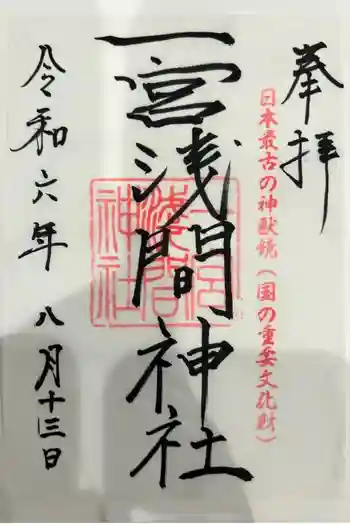 奉拝
日本最古の神獣鏡（国の重要文化財）
一宮浅間神社
令和六年 八月十三日